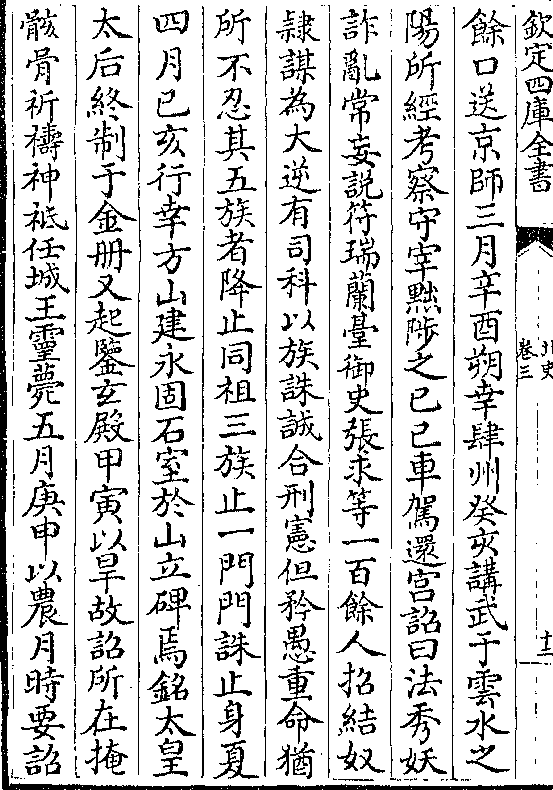 欽定四庫全書
北史
卷三
十三
餘口送京師三月辛酉朔幸肆州癸亥講武于雲水之
陽所經考察守宰黜陟之己巳車駕還宮詔曰法秀妖
詐亂常妄說符瑞蘭臺御史張求等一百餘人招結奴
隸謀為大逆有司科以族誅誠合刑憲但矜愚重命猶
所不忍其五族者降止同祖三族止一門門誅止身夏
四月己亥行幸方山建永固石室於山立碑焉銘太皇
太后終制于金冊又起鑒玄殿甲寅以旱故詔所在掩
骸骨祈禱神祗任城王雲薨五月庚申以農月時要詔